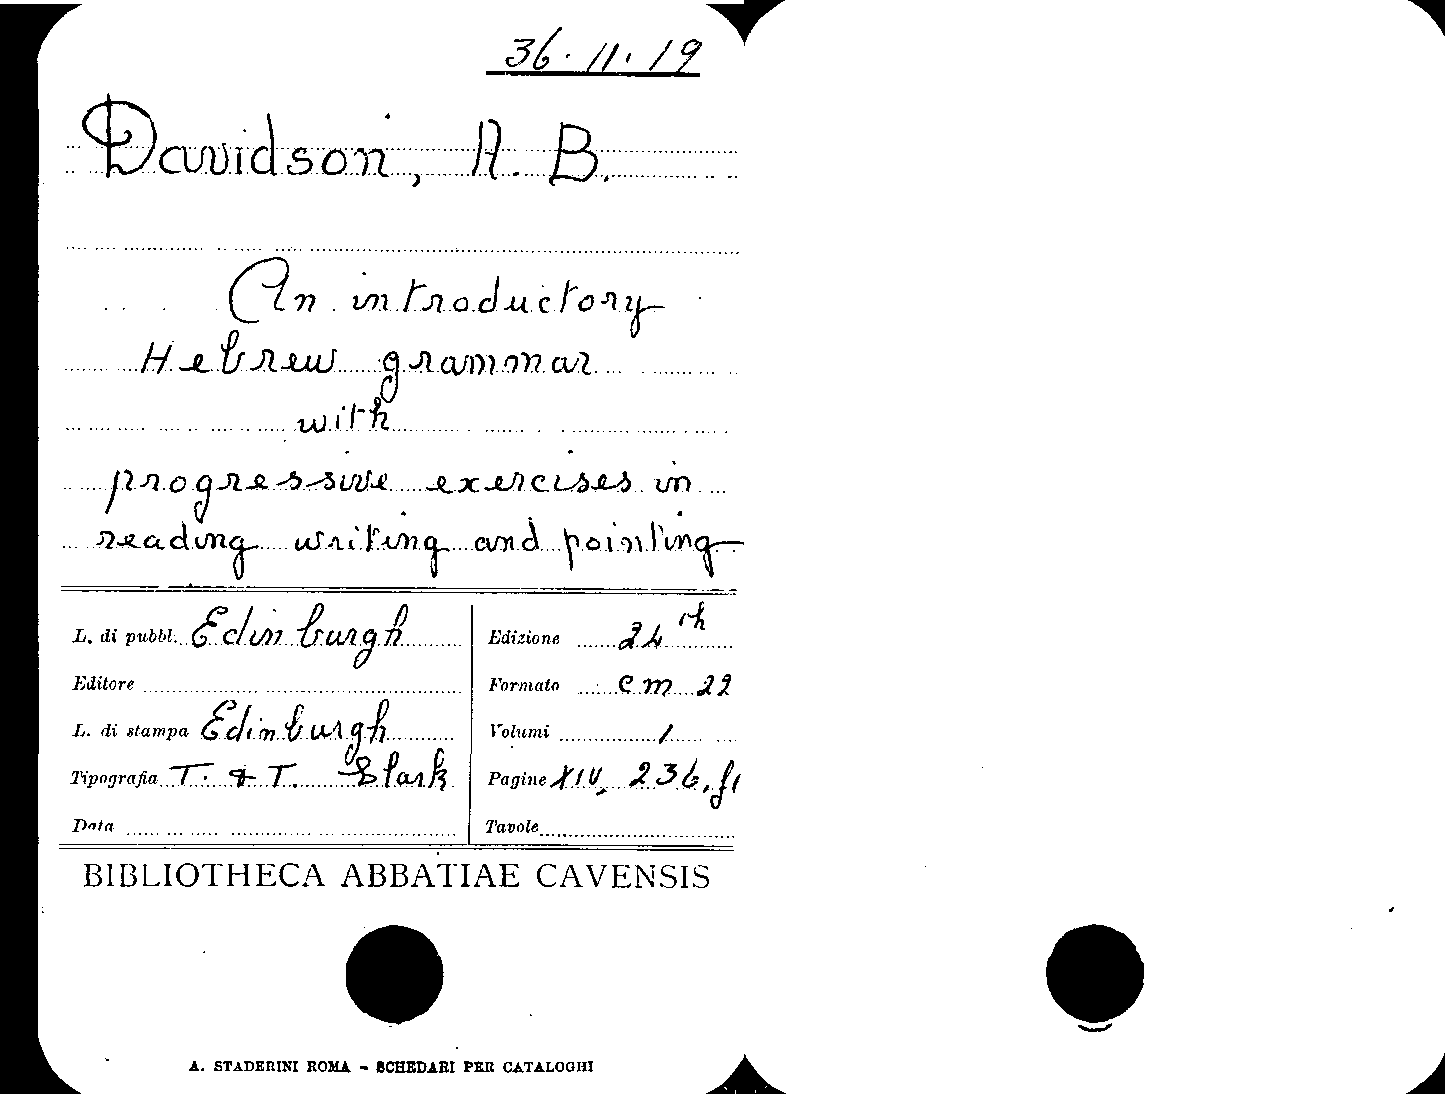 36.11.19
Davidson, A. B.
An introductory
Hebrew grammar
with
progressive exercises in
reading writing and pointing
L. di pubbl. Edinburgh
Editore
L. di stampa Edinburgh
Tipografia T. & T. Clark
Data
Edizione 24th
Formato cm 22
Volumi 1
Pagine XIV, 236,
Tavole
BIBLIOTHECA ABBATIAE CAVENSIS
A. STADERINI ROMA - SCHEDARI PER CATALOGHI